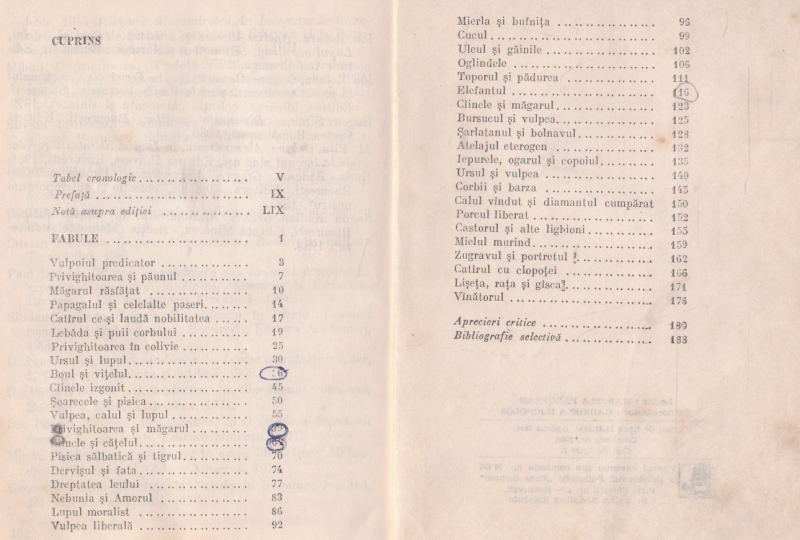 CUPRINS
Tabel cronologic V
Prefață IX
Notă asupra ediției LIX
FABULE 1
Vulpoiul predicator 3
Privighitoarea și păunul 7
Măgarul răsfățat 10
Papagalul și celelalte paseri 14
Catîrul ce-și laudă nobilitatea 17
Lebăda și puii corbului 19
Privighitoarea în colivie 25
Ursul și lupul 30
Boul și vițelul
Cîinele izgonit 45
Șoarecele și pisica 50
Vulpea, calul și lupul 55
Privighitoarea și măgarul 59
Cîinele și cățelul
Pisica sălbatică și tigrul 70
Dervișul și fata 74
Dreptatea leului 77
Nebunia și Amorul 83
Lupul moralist 86
Vulpea liberală 92
Mierla și bufnița 96
Cucul 99
Uleul și găinile 102
Oglindele 106
Toporul și pădurea 111
Elefantul 116
Cîinele și măgarul 123
Bursucul și vulpea 125
Șarlatanul și bolnavul 128
Atelajul eterogen 132
Iepurele, ogarul și copoiul 135
Ursul și vulpea 140
Corbii și barza 145
Calul vîndut și diamantul cumpărat 150
Porcul liberat 152
Castorul și alte lighioni 155
Mielul murind 159
Zugravul și portretul 162
Catîrul cu clopoței 166
Lișeța, rața și gîsca 171
Vînătorul 176
Aprecieri critice 180
Bibliografie selectivă 188